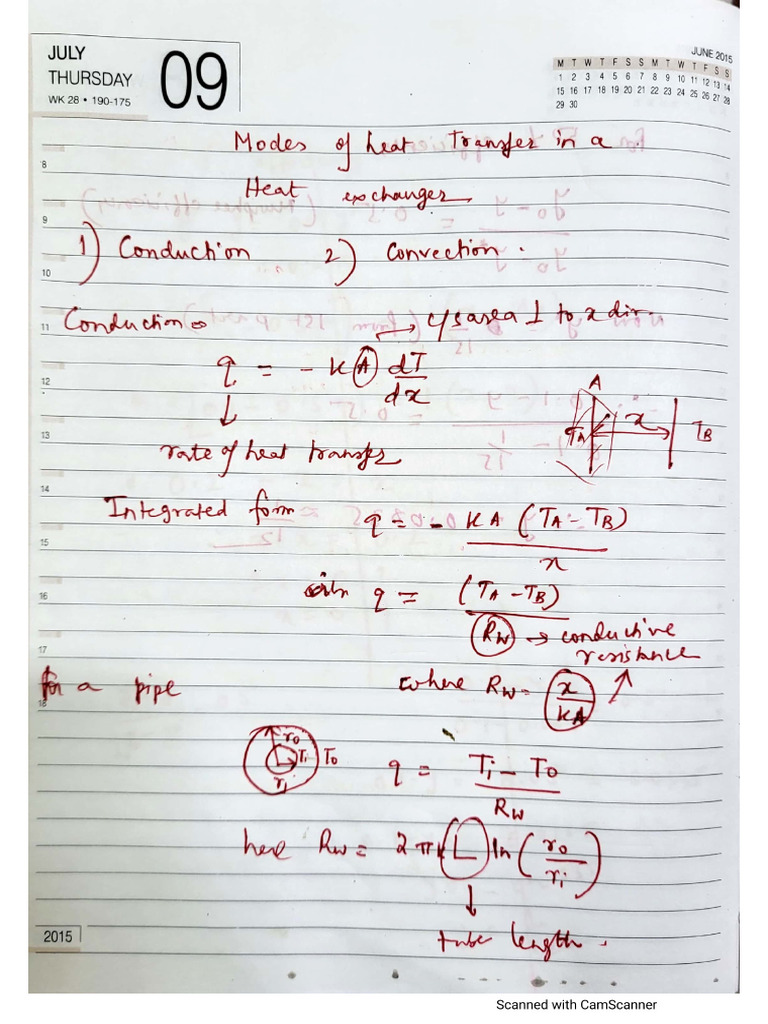 JULY
THURSDAY
WK 28 • 190-175
09
JUNE 2015
M T W T F S S M T W T F S S
1 2 3 4 5 6 7 8 9 10 11 12 13 14
15 16 17 18 19 20 21 22 23 24 25 26 27 28
29 30
Modes of heat Transfer in a
8
Heat exchanger
9
1) Conduction 2) Convection.
10
11 Conduction → c/s area ⊥ to x dir.
q = - kA dT/dx
12
A
x
TA TB
13
rate of heat transfer
14
Integrated form q = - KA (TA - TB)/x
15
q = (TA - TB)/RW → conductive
16
resistance
17
for a pipe where RW = x/kA
18
ro Ti To
ri
q = Ti - To/RW
here RW = 2πkL ln(ro/ri)
2015
tube length.
Scanned with CamScanner